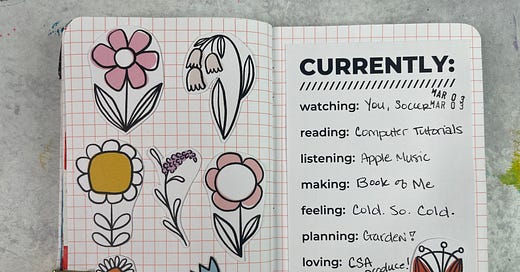 CURRENTLY:
MAR 03
watching: You, Soccer
MAR 03
reading: Computer Tutorials
listening: Apple Music
making: Book of Me
feeling: Cold. So. Cold.
planning: Garden?
loving: CSA
produce!